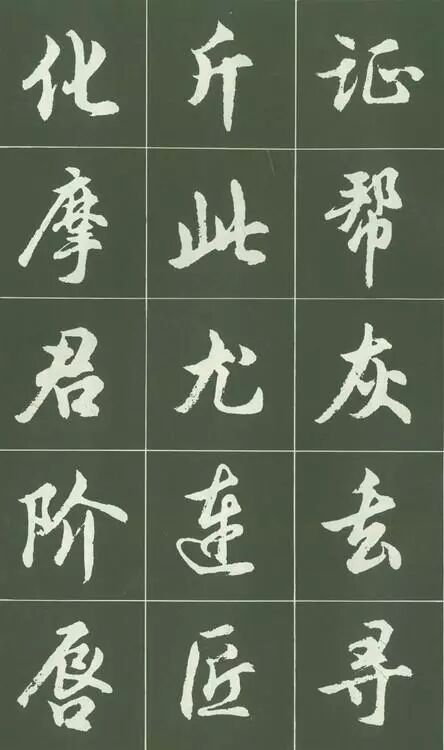 化 斤 证
摩 此 帮
君 尤 灰
阶 连 丢
唇 匠 寻